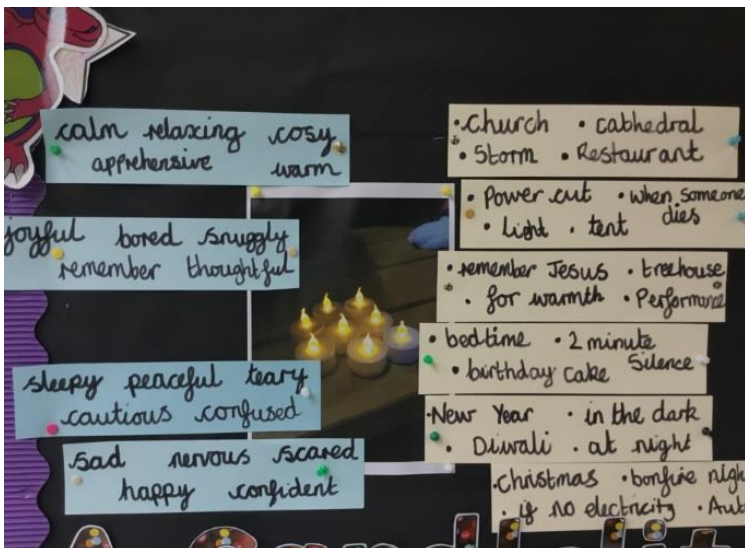 calm relaxing cosy
apprehensive warm
joyful bored snuggly
remember thoughtful
sleepy peaceful teary
cautious confused
sad nervous scared
happy confident
• Church • cathedral
• Storm • Restaurant
• Power cut • when someone
dies
• Light • tent
• remember Jesus • treehouse
• for warmth • Performance
• bedtime • 2 minute
Silence
• birthday cake
• New Year • in the dark
• Diwali • at night
• Christmas • bonfire nigh
• if no electricity • Aut